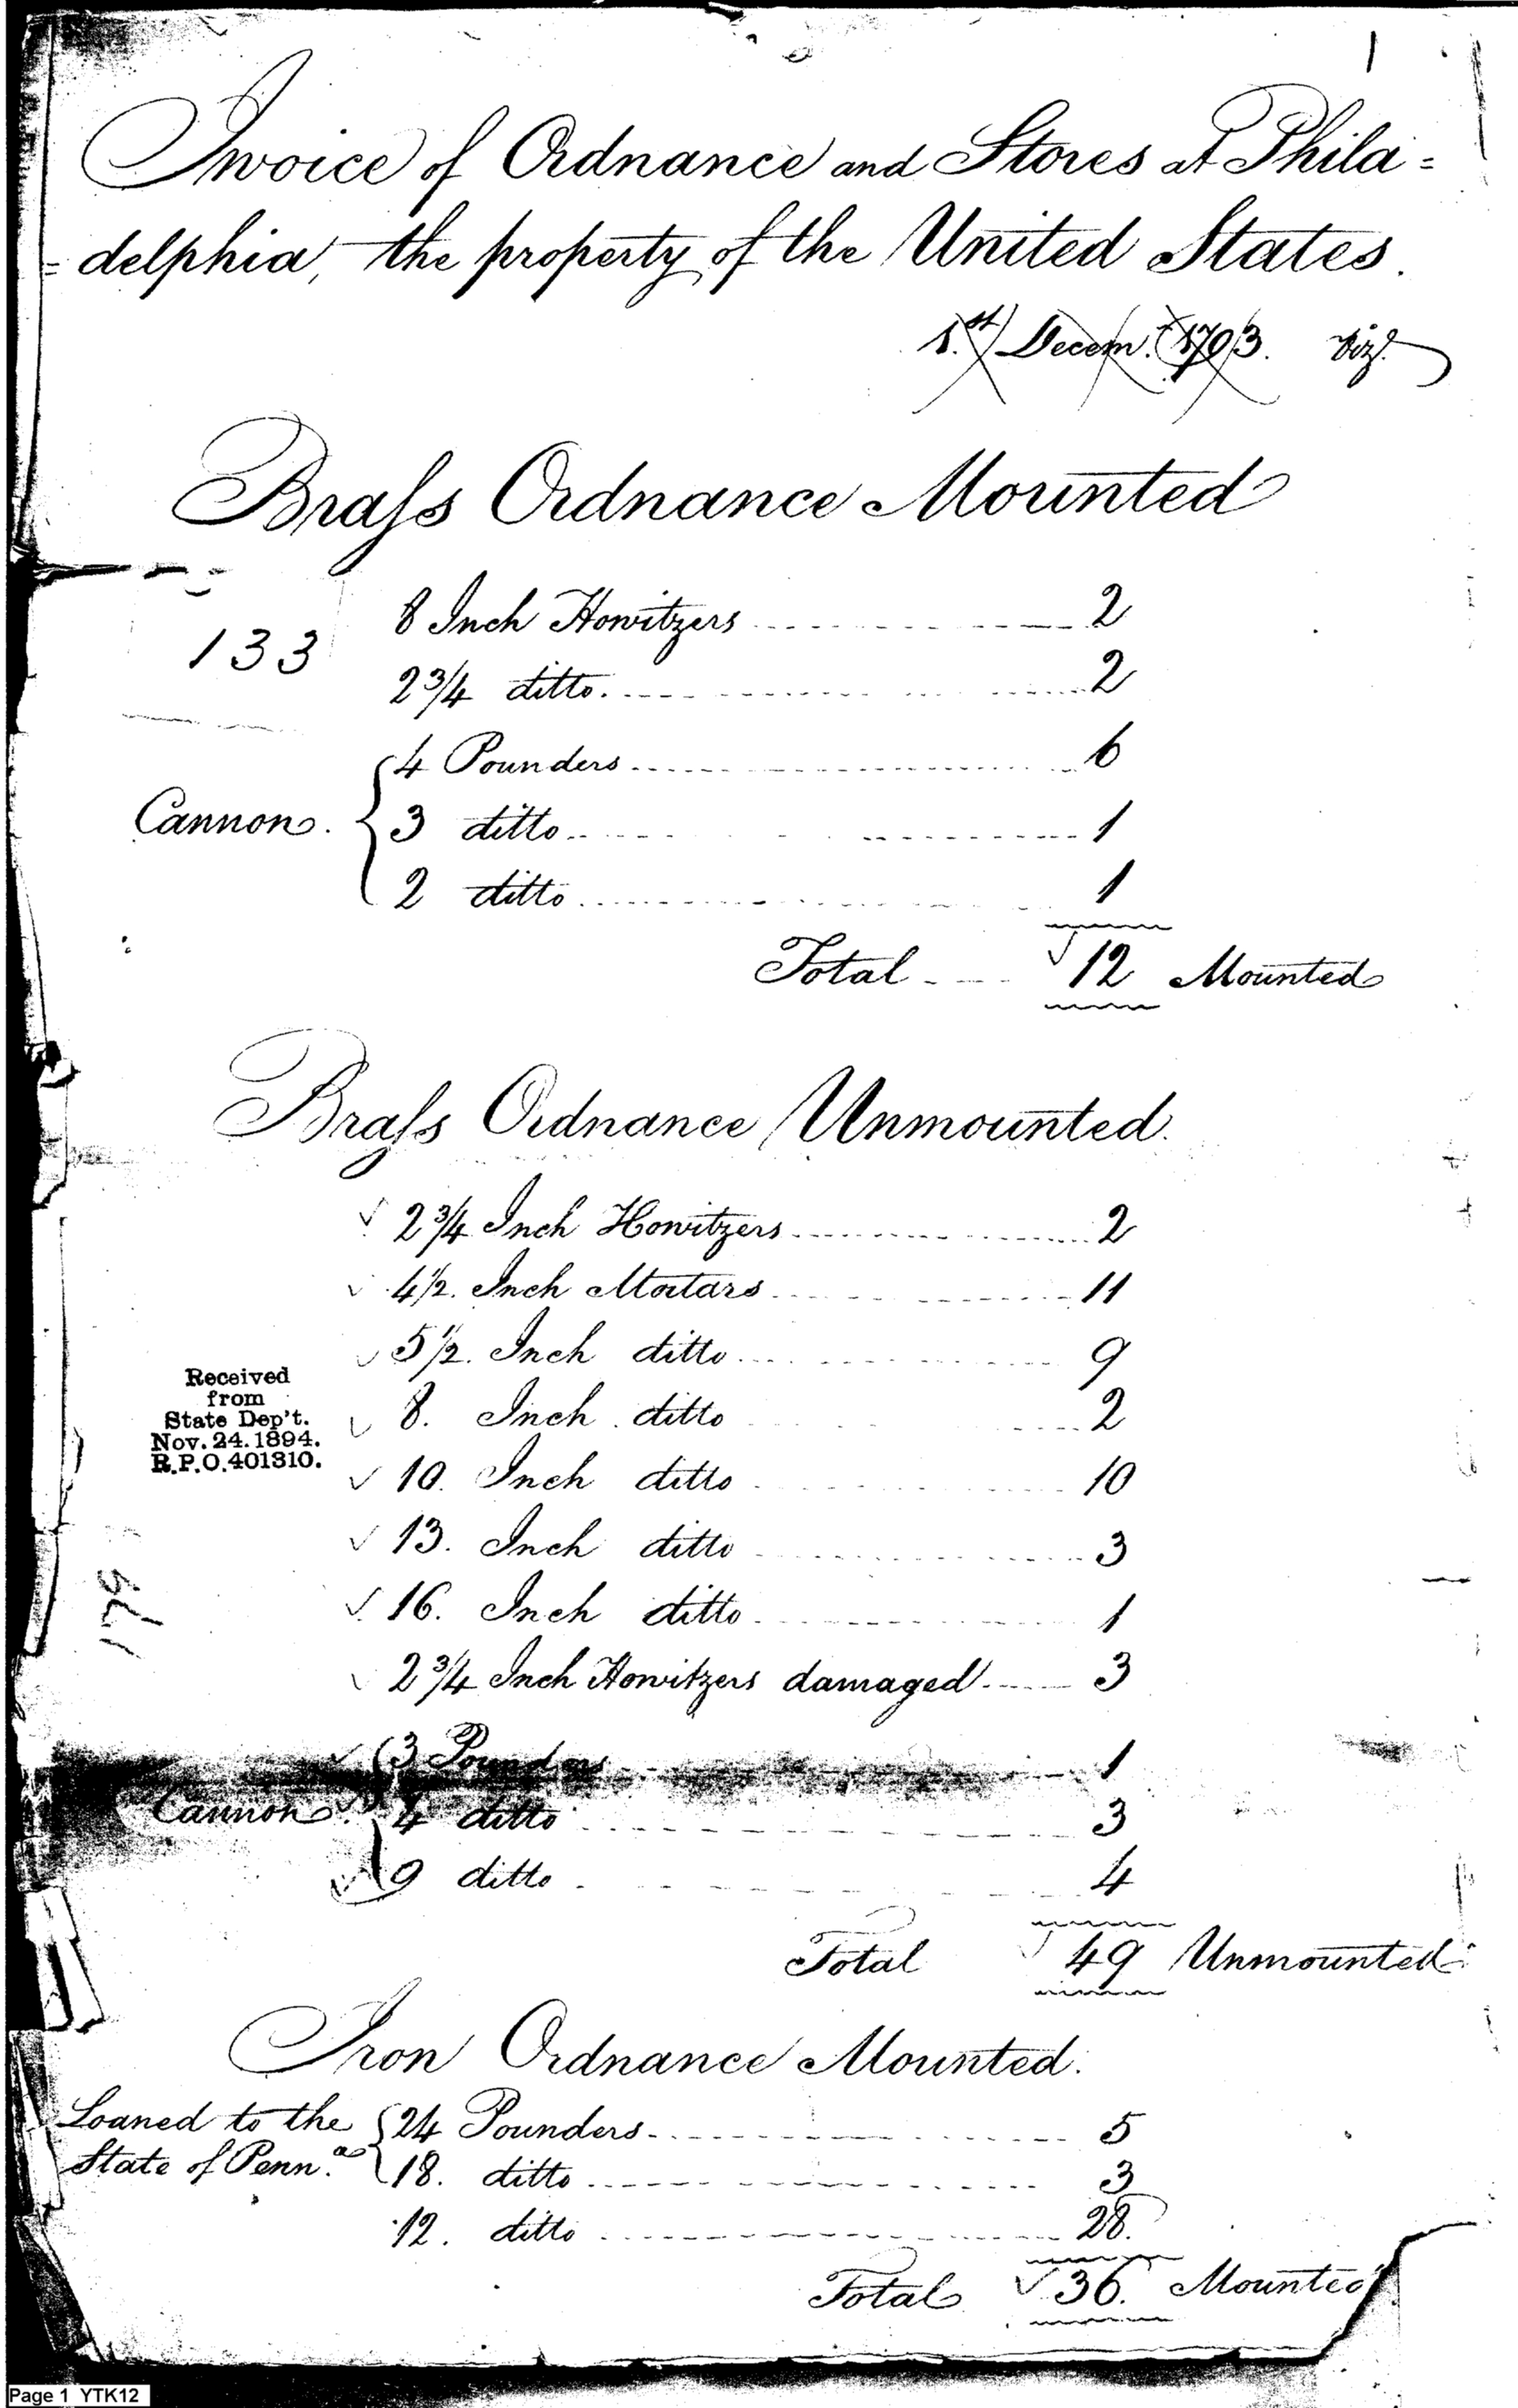 1
Invoice of Ordnance and Stores at Phila=
=delphia, the property of the United States.
1.st Decem.r 1793. Viz.t
Braſs Ordnance Mounted
133
8 Inch Howitzers 2
2 3/4 ditto. 2
4 Pounders 6
Cannon. { 3 ditto 1
2 ditto 1
Total 12 Mounted
Braſs Ordnance Unmounted.
✓ 2 3/4 Inch Howitzers 2
✓ 4 1/2. Inch Mortars 11
✓ 5 1/2. Inch ditto 9
✓ 8. Inch ditto 2
✓ 10. Inch ditto 10
✓ 13. Inch ditto 3
✓ 16. Inch ditto 1
✓ 2 3/4 Inch Howitzers damaged 3
Received
from
State Dep't.
Nov. 24. 1894.
R.P.O. 401310.
179
✓ { 3 Pounders 1
Cannon. ✓ 4 ditto 3
✓ 9 ditto 4
Total ✓ 49 Unmounted
Iron Ordnance Mounted.
Loaned to the { 24 Pounders 5
State of Penn.a { 18. ditto 3
12. ditto 28.
Total ✓ 36. Mounted
Page 1 YTK12